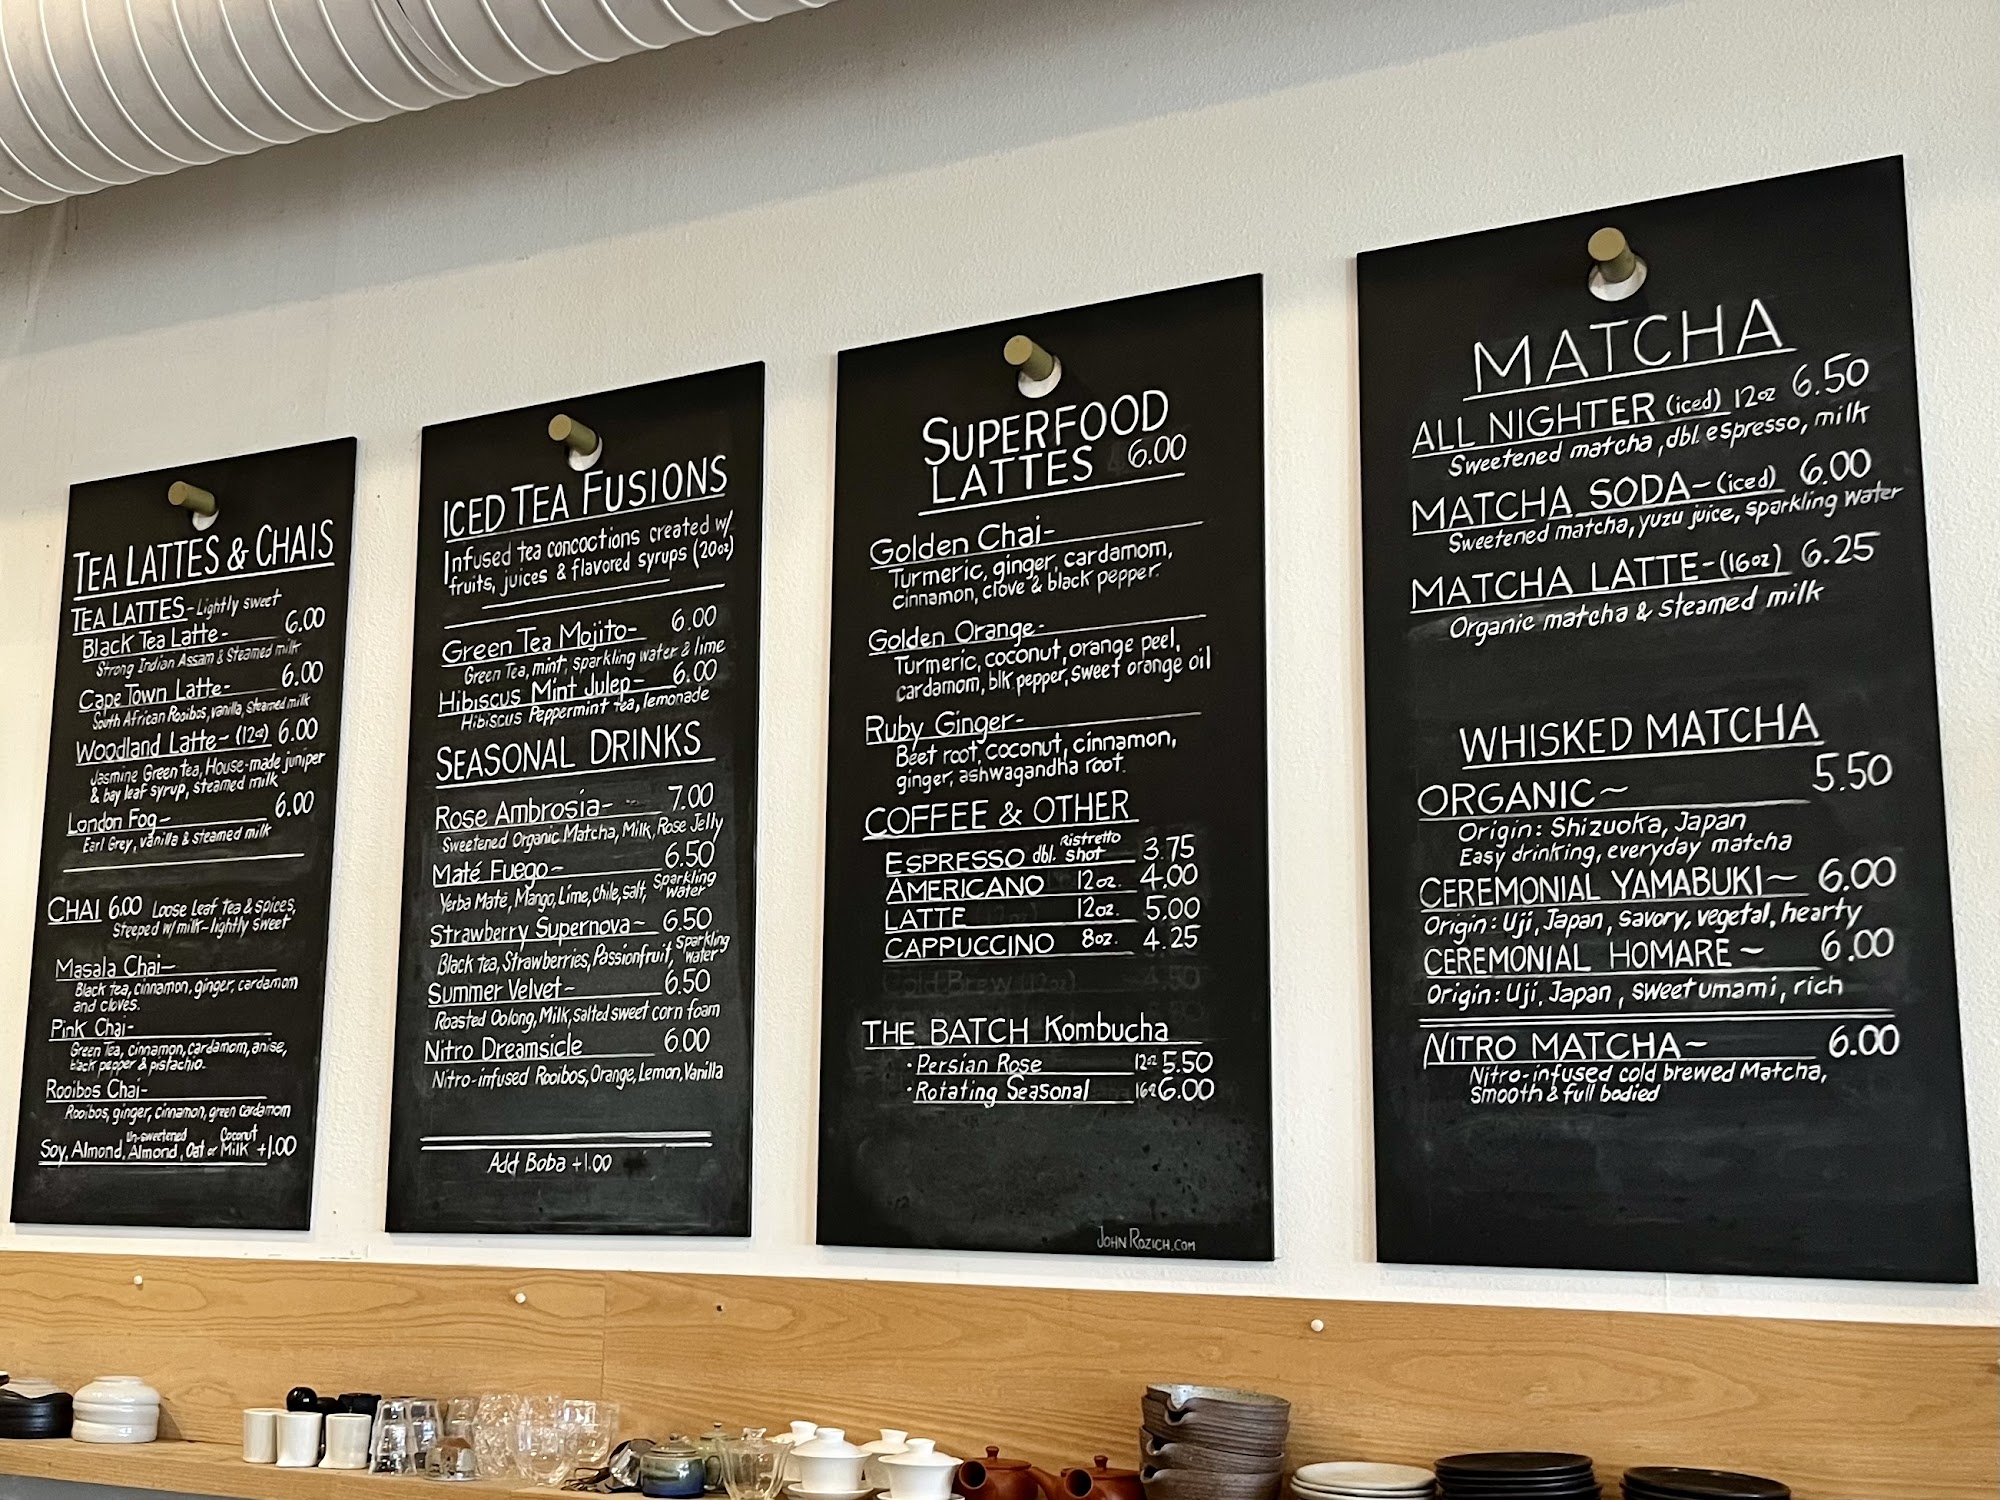 TEA LATTES & CHAIS
TEA LATTES - Lightly sweet
Black Tea Latte- 6.00
Strong Indian Assam & Steamed milk
Cape Town Latte- 6.00
South African Rooibos, vanilla, steamed milk
Woodland Latte- (12oz) 6.00
Jasmine Green tea, House-made juniper
& bay leaf syrup, steamed milk
London Fog- 6.00
Earl Grey, vanilla & steamed milk
CHAI 6.00 Loose leaf tea & spices,
steeped w/ milk-lightly sweet
Masala Chai-
Black tea, cinnamon, ginger, cardamom
and cloves.
Pink Chai-
Green Tea, cinnamon, cardamom, anise,
black pepper & pistachio.
Rooibos Chai-
Rooibos, ginger, cinnamon, green cardamom
Soy, Almond, Un-sweetened Almond, Oat or Coconut Milk +1.00
ICED TEA FUSIONS
Infused tea concoctions created w/
fruits, juices & flavored syrups (20oz)
Green Tea Mojito- 6.00
Green Tea, mint, sparkling water & lime
Hibiscus Mint Julep- 6.00
Hibiscus Peppermint tea, lemonade
SEASONAL DRINKS
Rose Ambrosia- 7.00
Sweetened Organic Matcha, Milk, Rose Jelly
Maté Fuego~ 6.50
Yerba Maté, Mango, Lime, Chile, salt, Sparkling water
Strawberry Supernova~ 6.50
Black tea, Strawberries, Passionfruit, Sparkling water
Summer Velvet~ 6.50
Roasted Oolong, Milk, salted sweet corn foam
Nitro Dreamsicle 6.00
Nitro-infused Rooibos, Orange, Lemon, Vanilla
Add Boba +1.00
SUPERFOOD
LATTES 6.00
Golden Chai-
Turmeric, ginger, cardamom,
cinnamon, clove & black pepper.
Golden Orange-
Turmeric, coconut, orange peel,
cardamom, blk pepper, sweet orange oil
Ruby Ginger-
Beet root, coconut, cinnamon,
ginger, ashwagandha root.
COFFEE & OTHER
ESPRESSO dbl. Ristretto shot 3.75
AMERICANO 12oz. 4.00
LATTE 12oz. 5.00
CAPPUCCINO 8oz. 4.25
Cold Brew (12oz) 4.50
THE BATCH Kombucha
· Persian Rose 12oz 5.50
· Rotating Seasonal 16oz 6.00
JOHN ROZICH.COM
MATCHA
ALL NIGHTER (iced) 12oz 6.50
Sweetened matcha, dbl. espresso, milk
MATCHA SODA~ (iced) 6.00
Sweetened matcha, yuzu juice, sparkling water
MATCHA LATTE-(16oz) 6.25
Organic matcha & steamed milk
WHISKED MATCHA
ORGANIC~ 5.50
Origin: Shizuoka, Japan
Easy drinking, everyday matcha
CEREMONIAL YAMABUKI~ 6.00
Origin: Uji, Japan, savory, vegetal, hearty
CEREMONIAL HOMARE ~ 6.00
Origin: Uji, Japan, sweet umami, rich
NITRO MATCHA~ 6.00
Nitro-infused cold brewed Matcha,
smooth & full bodied